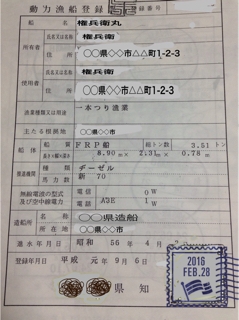 動力漁船登録
登録番号
船名 権兵衛丸
所有者 氏名又は名称 権兵衛
住所 〇〇県◇◇市△△町1-2-3
使用者 氏名又は名称 権兵衛
住所 〇〇県◇◇市△△町1-2-3
漁業種類又は用途 一本つり漁業
主たる根拠地 〇〇県◇◇市
船体 船質 FRP船 総トン数 3.51 トン
8.90m × 2.31m × 0.78m
推進機関 種類 ヂーゼル
馬力数 新 70
無線電波の型式及び空中線電力 電信 0W
電話 A3E 1W
造船所 名称 〇〇県造船
所在地 〇〇県◇◇市
進水年月日 昭和 56年 4月
登録年月日 平成 元年 9月 6日
県知
2016
FEB.28